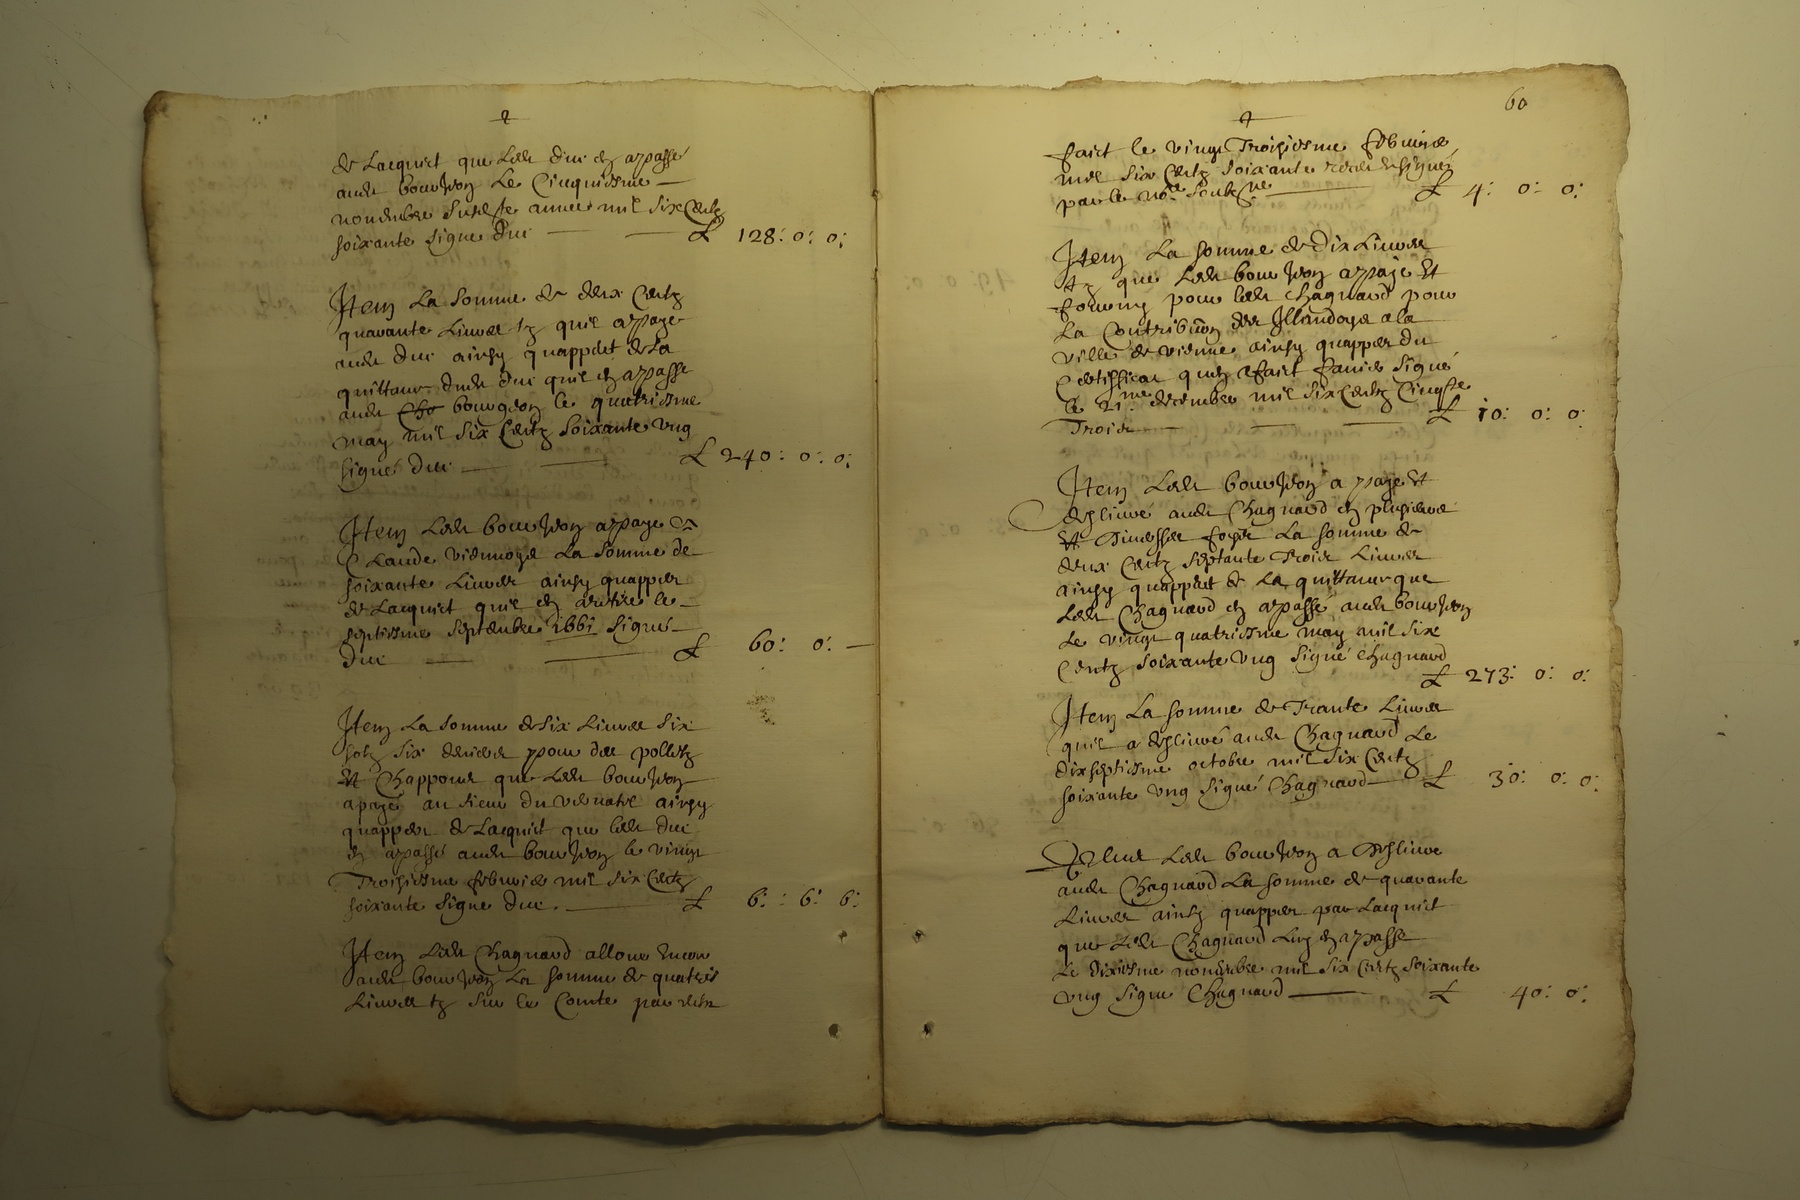 de Lacquict que Ledt Duc en a passé
audt bourjon Le Cinquiesme —
novembre susdste annee mil six Centz
soixante signe Duc — — £ 128: 0: 0:
Item La somme de deux Centz
quarante Livres tz quil a paye
audt Duc ainsy quappert de La
quittance dudt Duc quil en a passe
audt bourgeon le quatriesme
may mil six Centz soixante ung
signé Duc — — £ 240: 0: 0:
Item Ledt bourjon a paye a
Claude viennoys La somme de
soixante Livres ainsy quapper
de Lacquict quil en a retire le —
septiesme septembre 1661 signé —
Duc — — £ 60: 0: —
Item La somme de six Livres six
solz six deniers pour des polletz
Et Chappons que Ledt bourjon
a payé au sieur du vernatel ainsy
quapper de Lacquict que ledt Duc
en a passé audt bourjon le vingt
Troisiesme febvrier mil six Centz
soixante signe Duc. — £ 6: : 6: 6:
Item Ledt Chagnard alloue encor
audt bourjon La somme de quatre
Livres tz sur le Comte par eux
60
faict le vingt Troisiesme febvrier
mil six Centz soixante signé
par le noe soubzne — £ 4: 0: 0:
Item La somme de Dix Livres
tz que Ledt bourjon a paye Et
fourny pour ledt Chagnard pour
La Contribuon des a la
ville de vienne ainsy quapper du
Certifficat quen a faict signé
le 21me decembre mil six Centz Cinqte
Trois — — — £ 10: 0: 0:
Item Ledt bourjon a paye Et
deslivré audt Chagnard en plusieurs
Et diverses foys La somme de
deux Centz septante Trois Livres
ainsy quappert de La quittance que
Ledt Chagnard en a passé audt bourjon
Le vingt quatriesme may mil six
Centz soixante ung signé Chagnard
£ 273: 0: 0:
Item La somme de Trante Livres
quil a deslivré audt Chagnard Le
dixseptiesme octobre mil six Centz
soixante ung signé Chagnard — £ 30: 0: 0:
Plus Ledt bourjon a Deslivre
audt Chagnard La somme de quarante
Livres ainsy quapper par Lacquict
que Ledt Chagnard Luy en a passe
Le dixiesme novembre mil six Centz soixante
ung signe Chagnard — £ 40: 0: